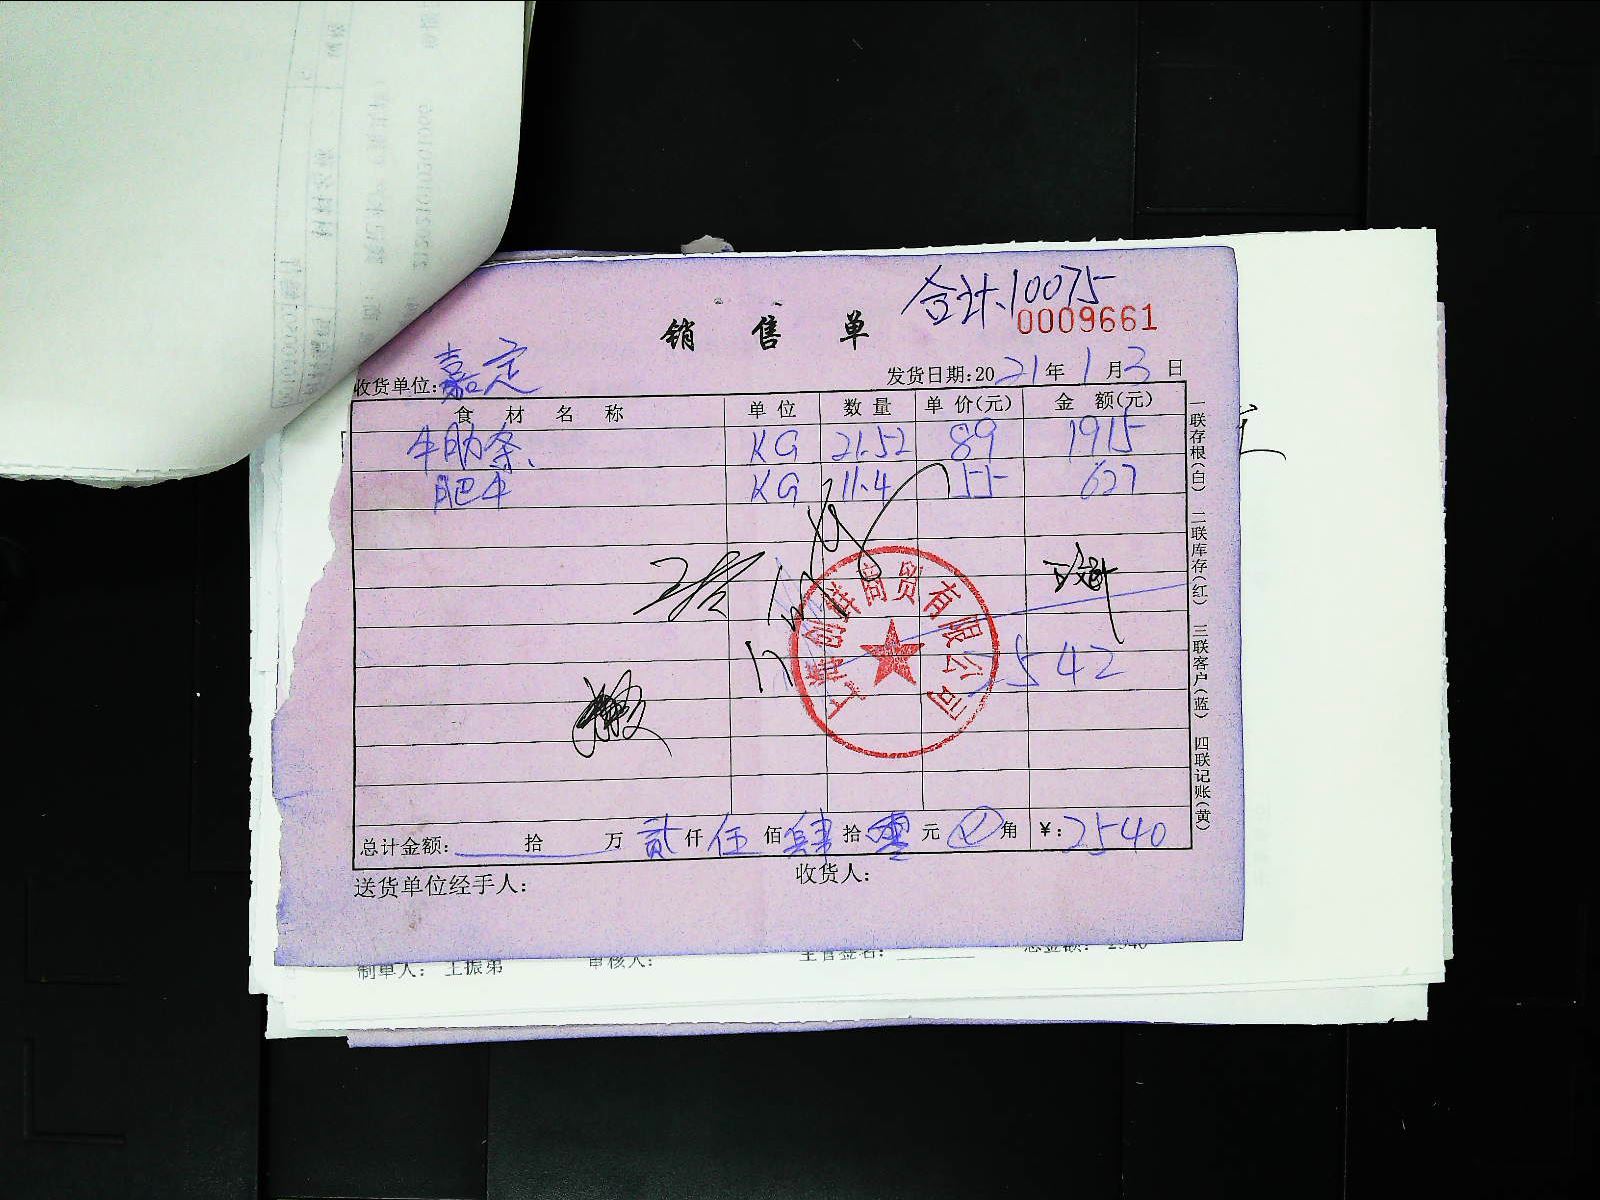 合计:10075
销售单
0009661
收货单位:嘉定
发货日期:2021年1月3日
食材名称 单位 数量 单价(元) 金额(元)
牛肋条 KG 21.52 89 1915
肥牛 KG 11.4 55 627
2542
上海创祥商贸有限公司
总计金额: 拾 万 贰仟伍佰肆拾零元 角 ¥:2540
送货单位经手人: 收货人:
一联存根(白) 二联库存(红) 三联客户(蓝) 四联记账(黄)
制单人: 王振弟 审核人: 主管签名: 总金额: 2540